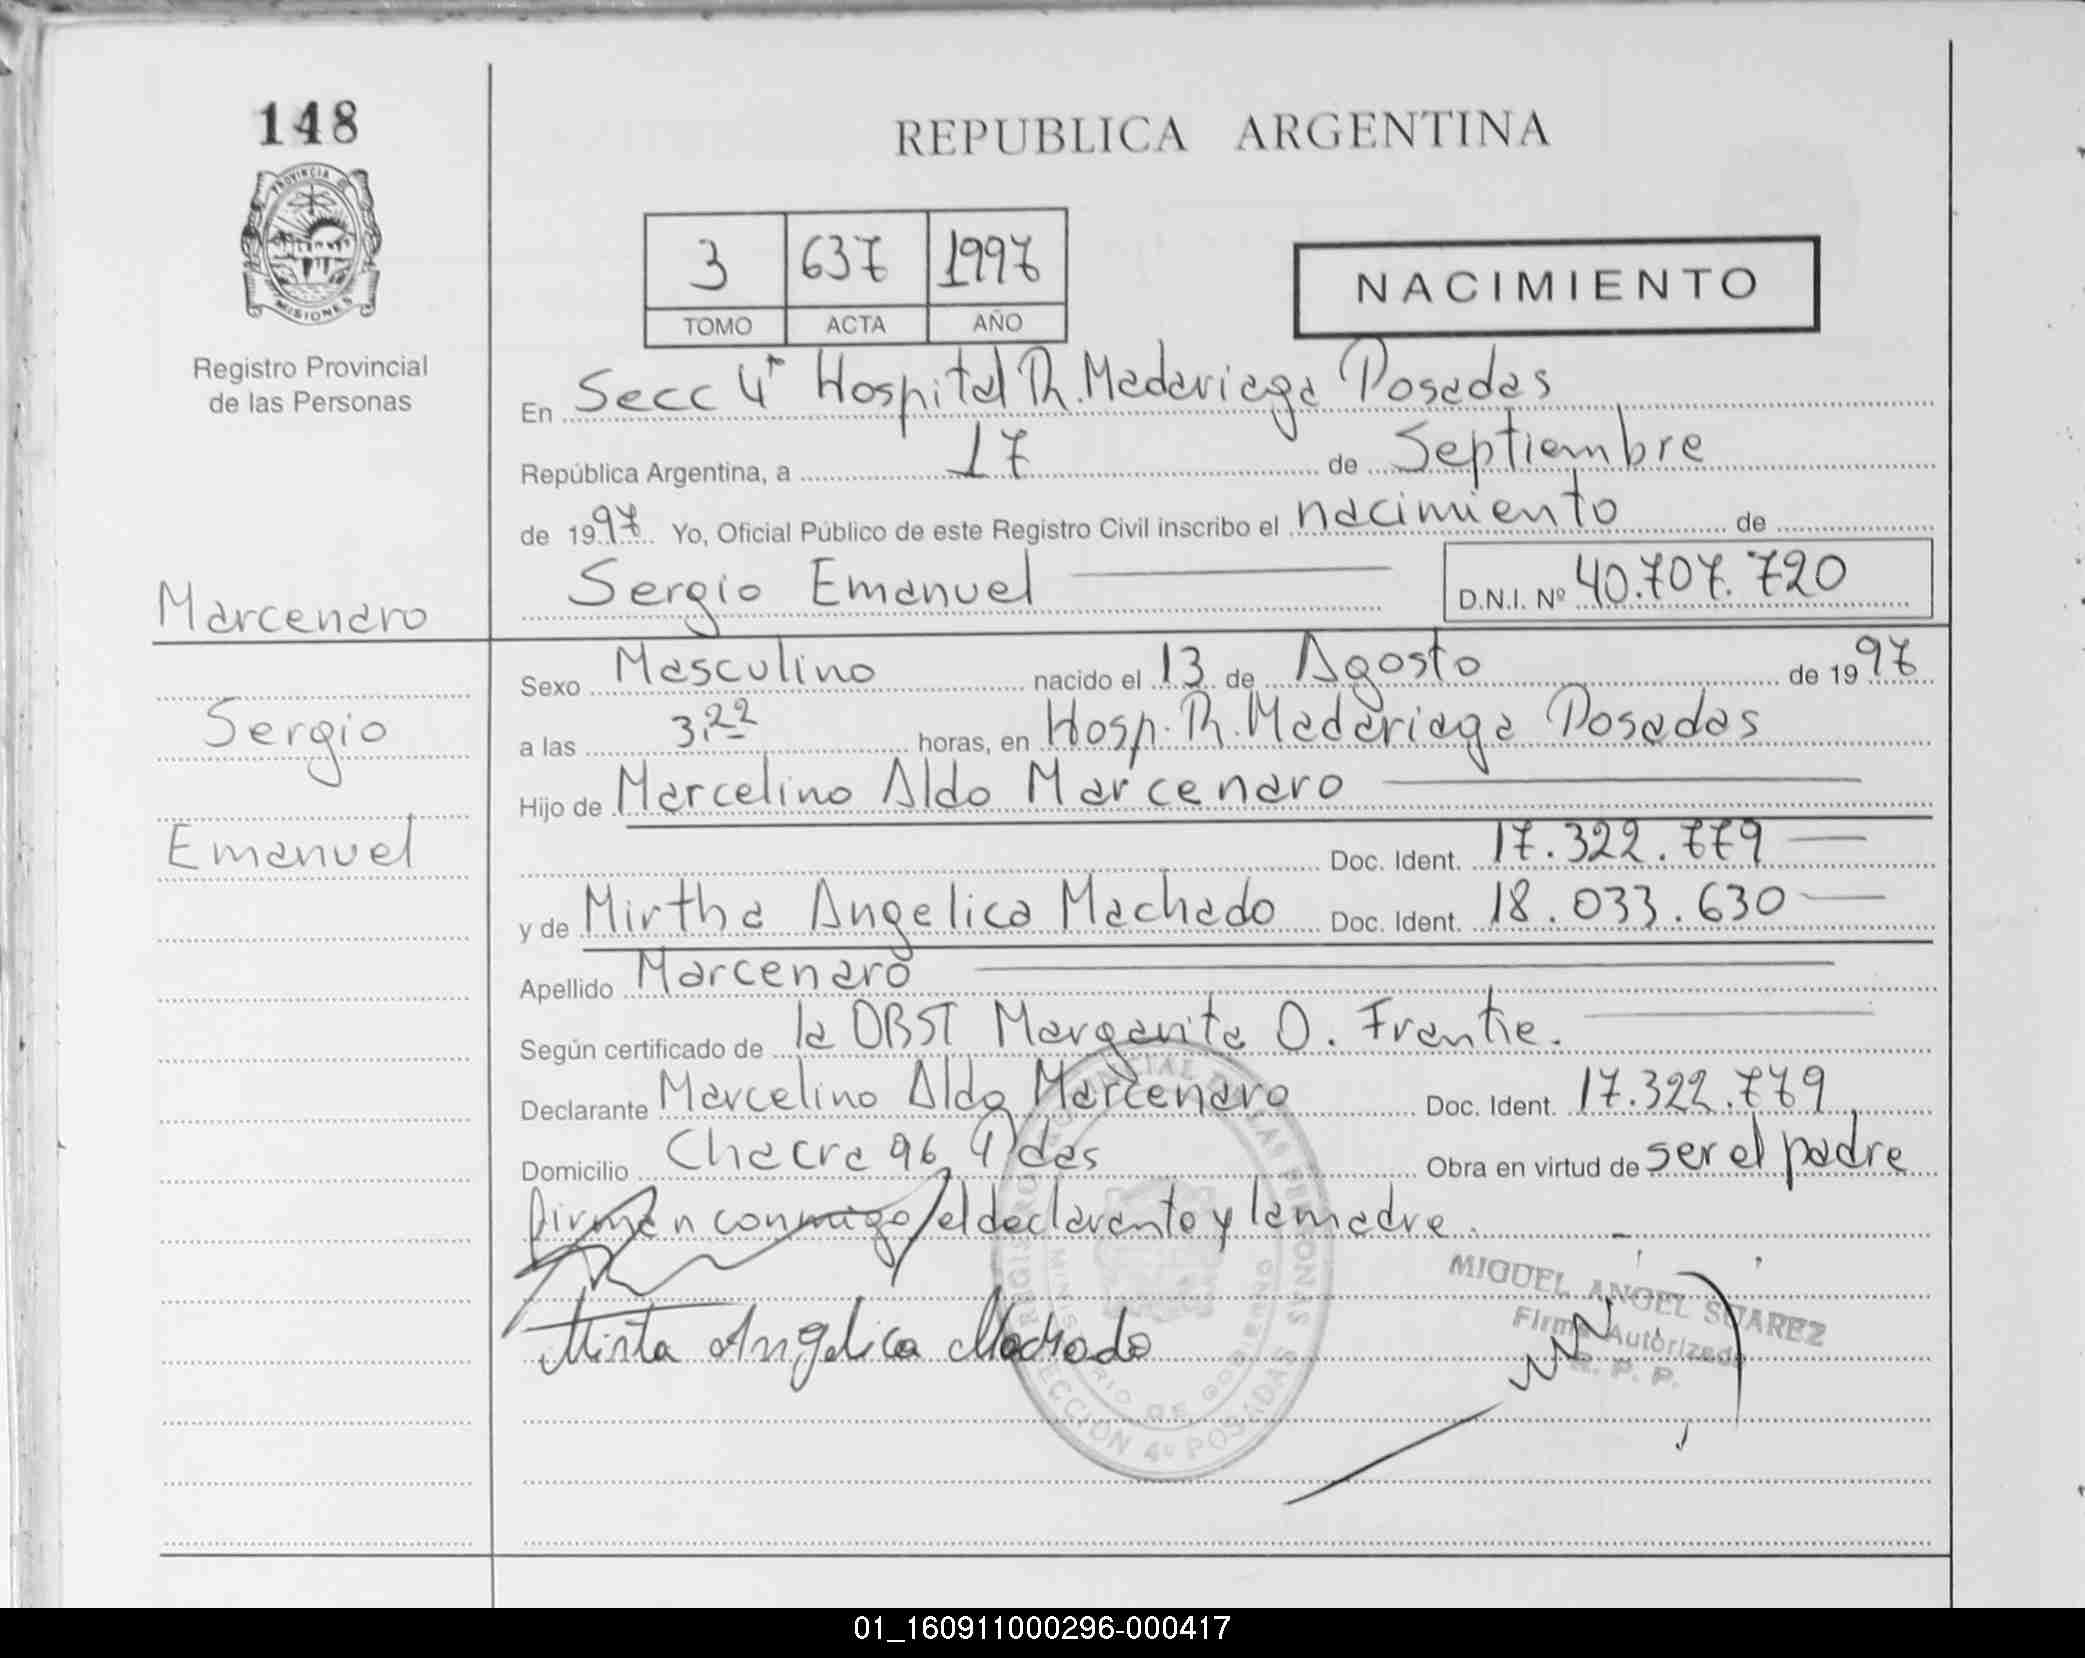 148
PROVINCIA DE
MISIONES
Registro Provincial
de las Personas
REPUBLICA ARGENTINA
3 637 1997
TOMO ACTA AÑO
NACIMIENTO
En Secc 4ª Hospital R. Madariaga Posadas
República Argentina, a 17 de Septiembre
de 1997 Yo, Oficial Público de este Registro Civil inscribo el nacimiento de
Sergio Emanuel D.N.I. Nº 40.707.720
Marcenaro
Sergio
Emanuel
Sexo Masculino nacido el 13 de Agosto de 1997
a las 3.22 horas, en Hosp. R. Madariaga Posadas
Hijo de Marcelino Aldo Marcenaro
Doc. Ident. 17.322.779
y de Mirtha Angelica Machado Doc. Ident. 18.033.630
Apellido Marcenaro
Según certificado de la OBST Margarita O.
Declarante Marcelino Aldo Marcenaro Doc. Ident. 17.322.779
Domicilio Chacra 96 Pdas Obra en virtud de ser el padre
Firman conmigo el declarante y la madre.
Mirta Angelica Machado
MIGUEL ANGEL SUAREZ
Firma Autorizada
R. P. P.
REGISTRO PROVINCIAL DE LAS PERSONAS
MINISTERIO DE GOBIERNO
SECCION 4º POSADAS
01_160911000296-000417